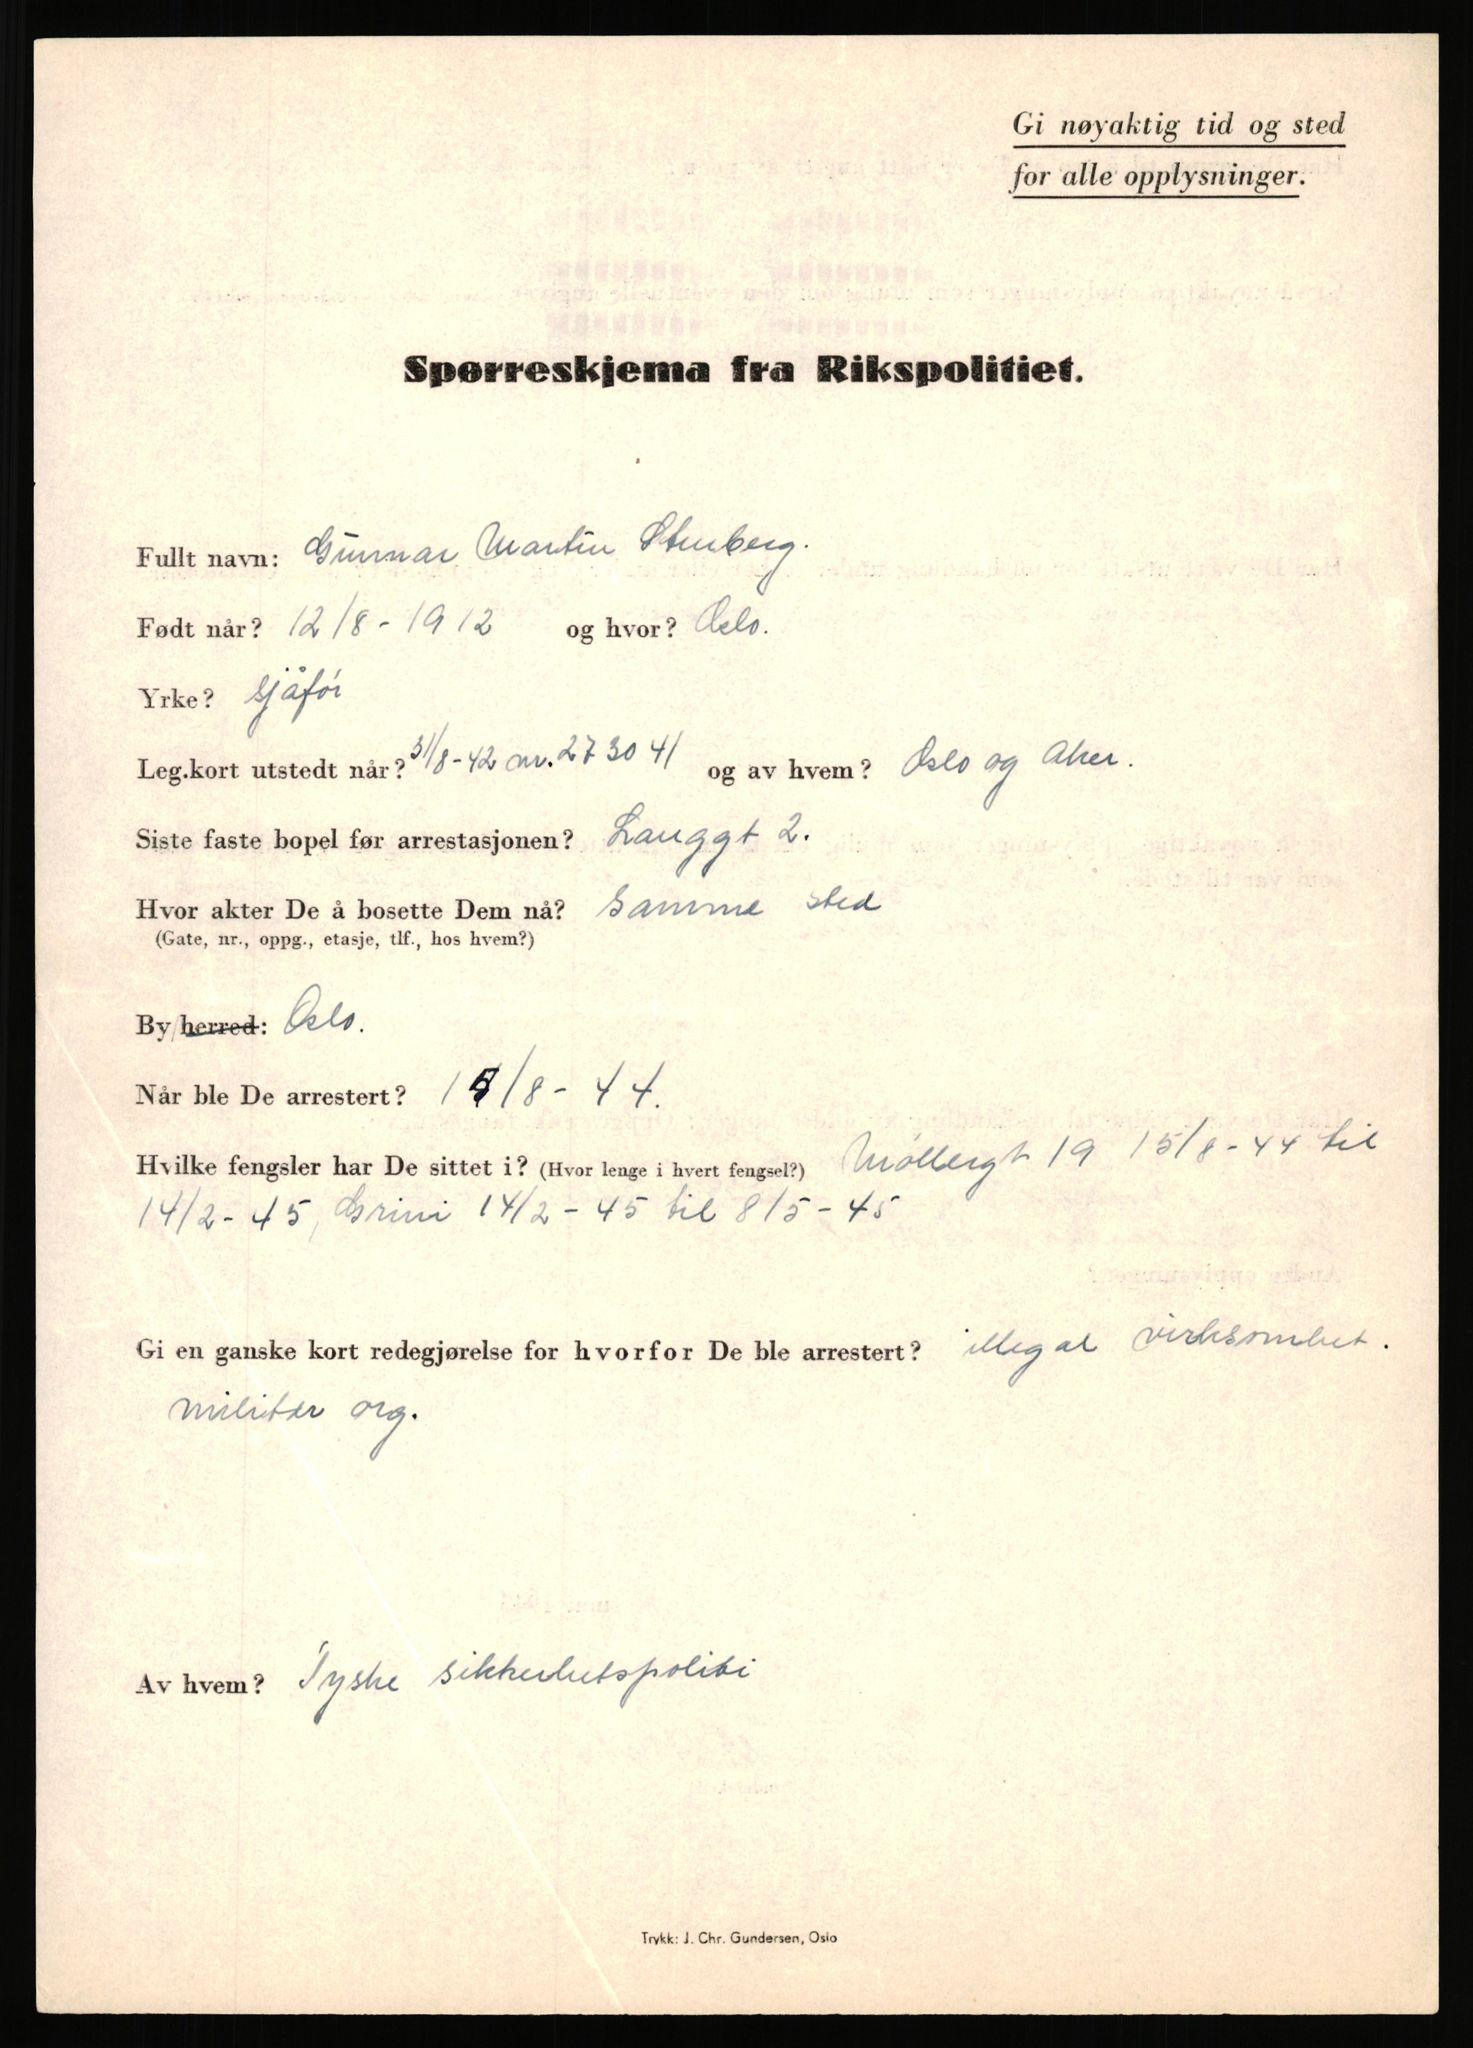 Gi nøyaktig tid og sted
for alle opplysninger.
Spørreskjema fra Rikspolitiet.
Fullt navn: Gunnar Martin Stenberg.
Født når? 12/8-1912 og hvor? Oslo.
Yrke? sjåför
Leg.kort utstedt når? 31/8-42 nr. 273041 og av hvem? Oslo og Aker.
Siste faste bopel før arrestasjonen? Langgt 2.
Hvor akter De å bosette Dem nå? samme sted
(Gate, nr., oppg., etasje, tlf., hos hvem?)
By/herred: Oslo.
Når ble De arrestert? 15/8-44.
Hvilke fengsler har De sittet i? (Hvor lenge i hvert fengsel?) Möllergt 19 15/8-44 til
14/2-45, Grini 14/2-45 til 8/5-45
Gi en ganske kort redegjørelse for hvorfor De ble arrestert? illegal virksomhet.
militær org.
Av hvem? Tyske sikkerhetspoliti
Trykk: J. Chr. Gundersen, Oslo